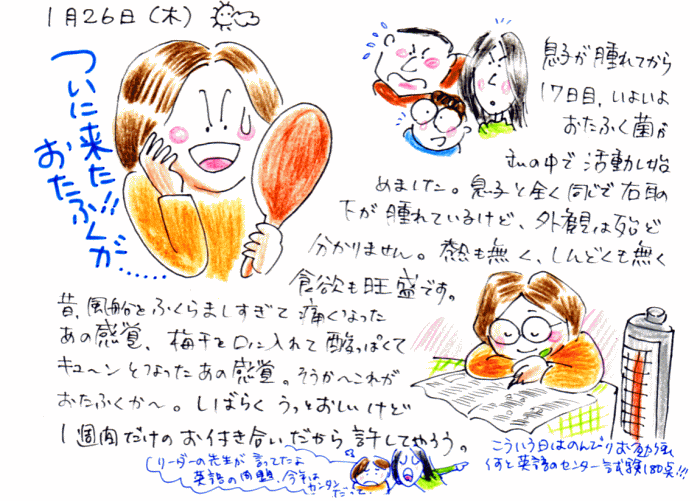 1月26日(木)
ついに来た!!
おたふくが……
息子が腫れてから
17日目、いよいよ
おたふく菌が
私の中で活動し始
めました。息子と全く同じで右耳の
下が腫れているけど、外観は殆ど
分かりません。熱も無く、しんどくも無く
食欲も旺盛です。
昔、風船をふくらましすぎて痛くなった
あの感覚、梅干を口に入れて酸っぱくて
キューンとなったあの感覚。そうか〜これが
おたふくか〜。しばらくうっとおしいけど
1週間だけのお付き合いだから許してやろう。
リーダーの先生が言ってたよ
英語の問題、今年は
カンタンだって
こういう日はのんびりお勉強
何と英語のセンター試験180点!!!